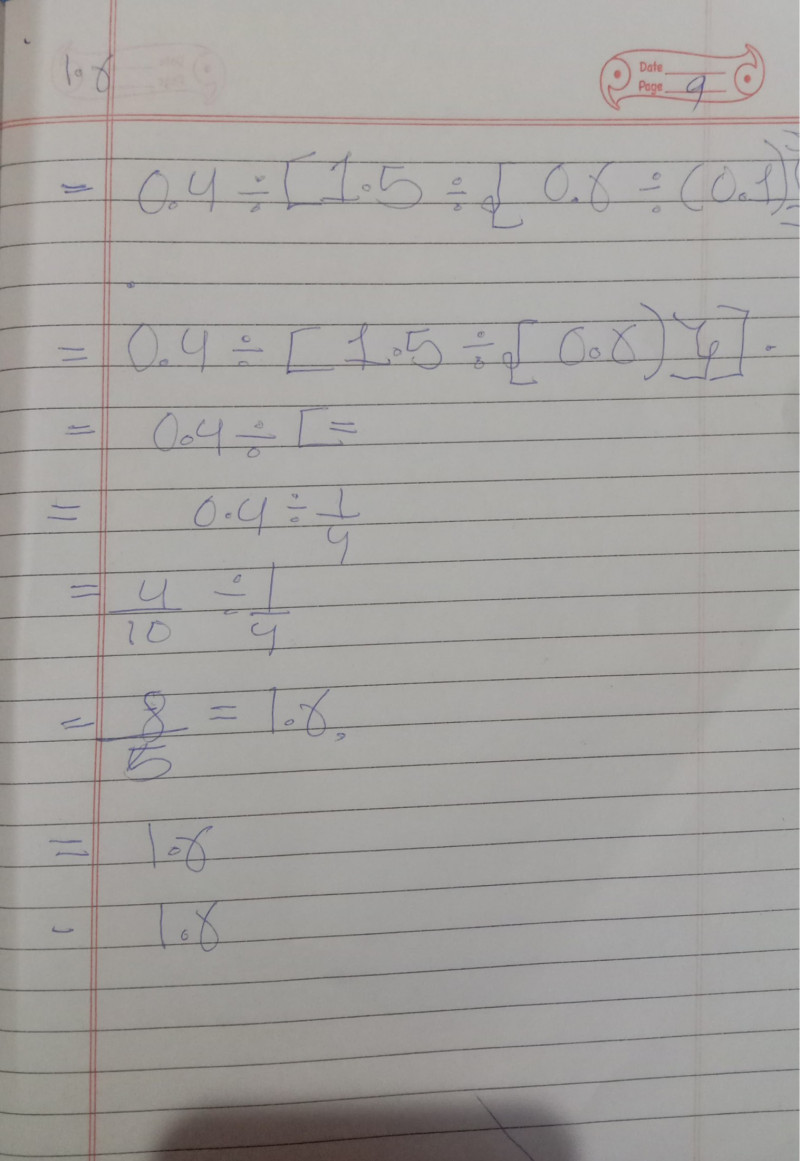 1.6
Date
Page 9
= 0.4 ÷ [1.5 ÷ { 0.6 ÷ (0.1)}
= 0.4 ÷ [ 1.5 ÷ { 0.6) }] .
= 0.4 ÷ [ =
= 0.4 ÷ 1/4
= 4/10 ÷ 1/4
= 8/5 = 1.6,
= 1.6
- 1.6